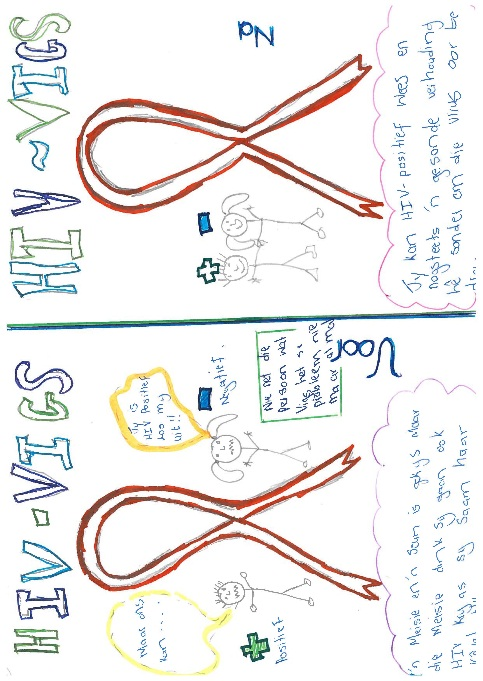 HIV-VIGS
Maar ons
kan.....
Jy is
HIV Positief
Los my
uit!!
Positief
Negatief.
Nie net die
Persoon wat
Vigs het se
probleem nie
maar almal
Voor
'n Meisie en 'n Seun is
die Meisie dink sy gaan ook
HIV kry as sy saam haar
HIV~VIGS
Na
Jy kan HIV-positief wees en
nogsteeds 'n gesonde verhouding
hê sonder om die virus oor te
dra.